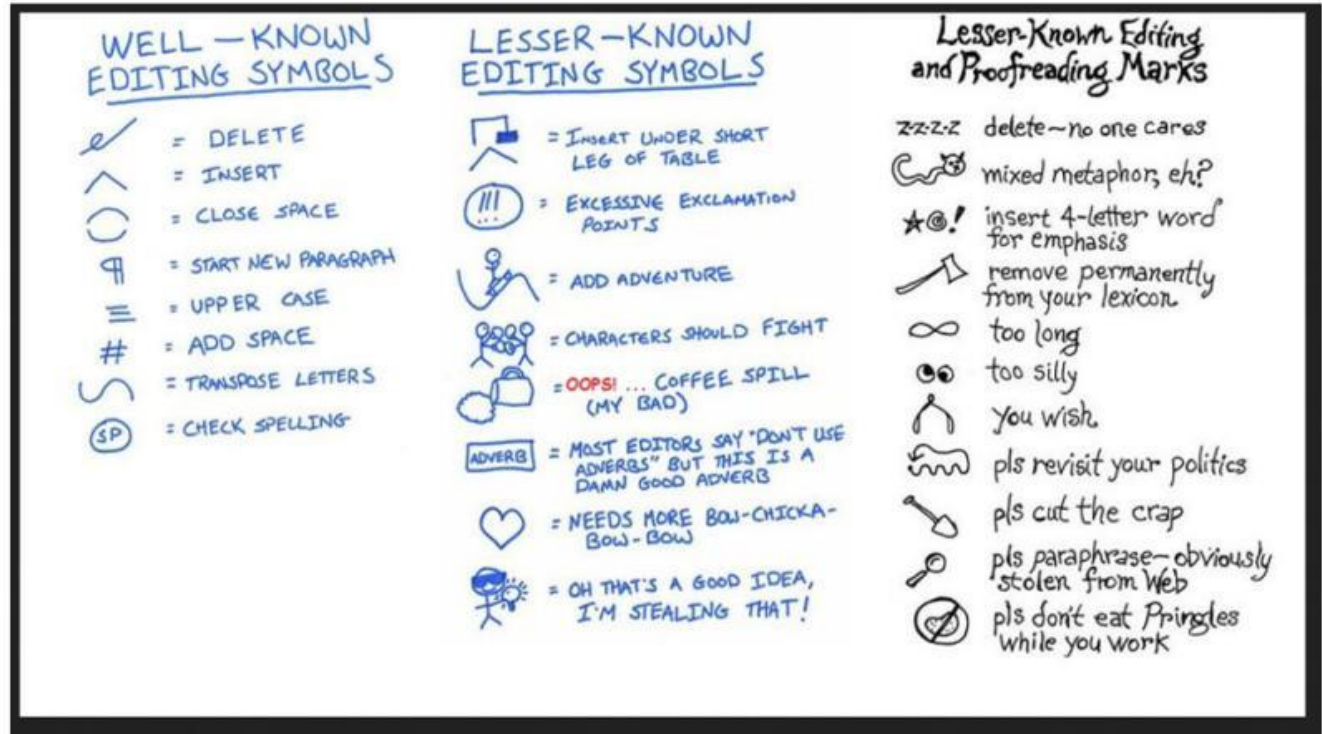 WELL-KNOWN
EDITING SYMBOLS
= DELETE
= INSERT
= CLOSE SPACE
= START NEW PARAGRAPH
= UPPER CASE
# = ADD SPACE
= TRANSPOSE LETTERS
SP = CHECK SPELLING
LESSER-KNOWN
EDITING SYMBOLS
= INSERT UNDER SHORT
LEG OF TABLE
!!! = EXCESSIVE EXCLAMATION
POINTS
= ADD ADVENTURE
= CHARACTERS SHOULD FIGHT
= OOPS! ... COFFEE SPILL
(MY BAD)
ADVERB = MOST EDITORS SAY "DON'T USE
ADVERBS" BUT THIS IS A
DAMN GOOD ADVERB
= NEEDS MORE BOW-CHICKA-
BOW-BOW
= OH THAT'S A GOOD IDEA,
I'M STEALING THAT!
Lesser-Known Editing
and Proofreading Marks
z-z-z-z delete~no one cares
mixed metaphor, eh?
★@! insert 4-letter word
for emphasis
remove permanently
from your lexicon
∞ too long
too silly
you wish
pls revisit your politics
pls cut the crap
pls paraphrase~obviously
stolen from Web
pls don't eat Pringles
while you work